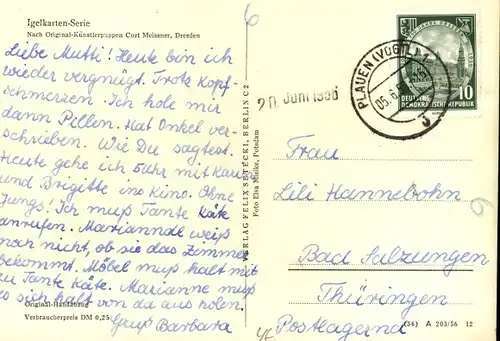 Igelkarten-Serie
Nach Original-Künstlerpuppen Curt Meissner, Dresden
Liebe Mutti! Heute bin ich
wieder vergnügt. Trotz Kopf-
schmerzen. Ich hole mir
dann Pillen. Hat Onkel ver-
schrieben. Wie Du sagtest.
Heute gehe ich 5 Uhr mit
und Brigitte ins Kino. Ohne
Jungs! Ich muß Tante Käte
anrufen. Marianne weiß
noch nicht, ob sie das Zimmer
bekommt. Möbel muß halt mit
zu Tante Käte. Marianne muß
es sich halt von da aus holen.
Gruß Barbara
Original-Handabzug
Verbraucherpreis DM 0,25
VERLAG FELIX SETECKI, BERLIN C 2
Foto Elsa Mielke, Potsdam
6
20. Juni 1956
PLAUEN (VOGTL)
DEUTSCHE
DEMOKRATISCHE REPUBLIK
10
Frau
Lili Hannebohn
6
Bad Salzungen
Thüringen
Postlagernd
(36) A 203/56 12